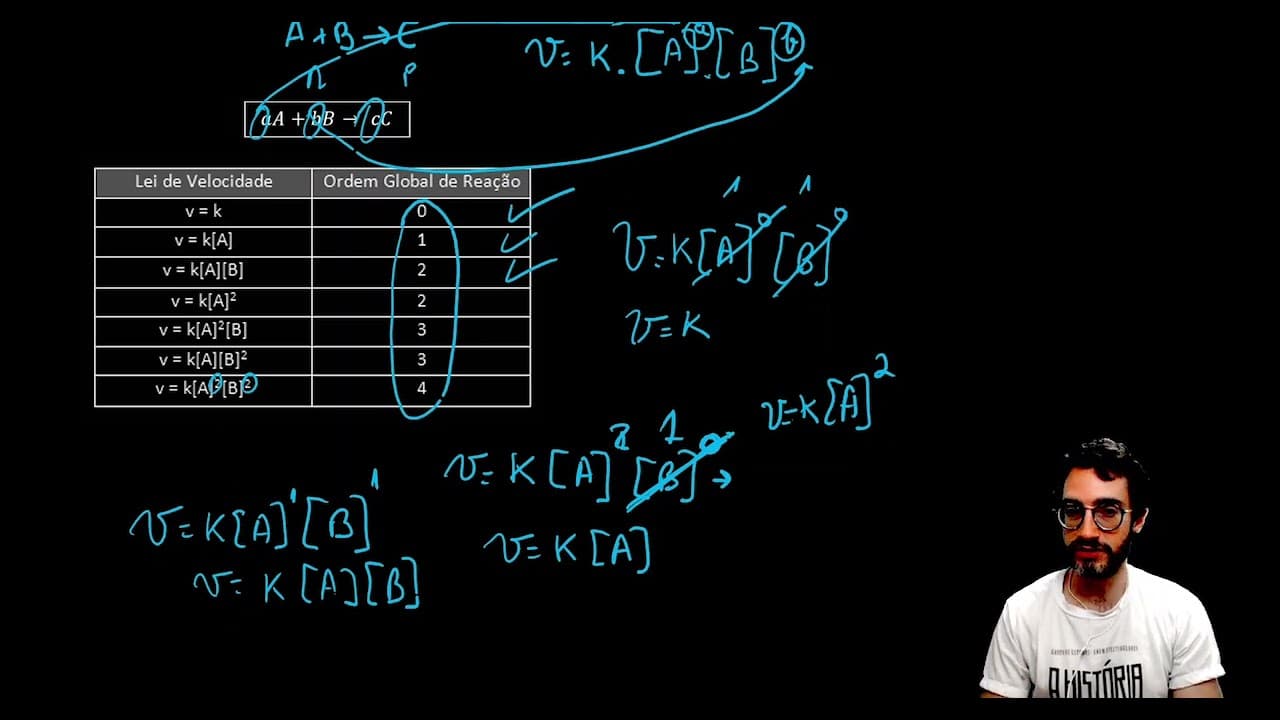 A + B → C
v = K . [A]ᵃ . [B]ᵇ
R P
aA + bB → cC
Lei de Velocidade Ordem Global de Reação
v = k 0
v = k[A] 1
v = k[A][B] 2
v = k[A]² 2
v = k[A]²[B] 3
v = k[A][B]² 3
v = k[A]²[B]² 4
1 1
v = K[A]⁰ [B]⁰
v = K
v = K[A]²
2 1
v = K [A] [B]⁰ →
v = K [A]
v = K[A]¹[B]¹
v = K [A][B]
A HISTÓRIA